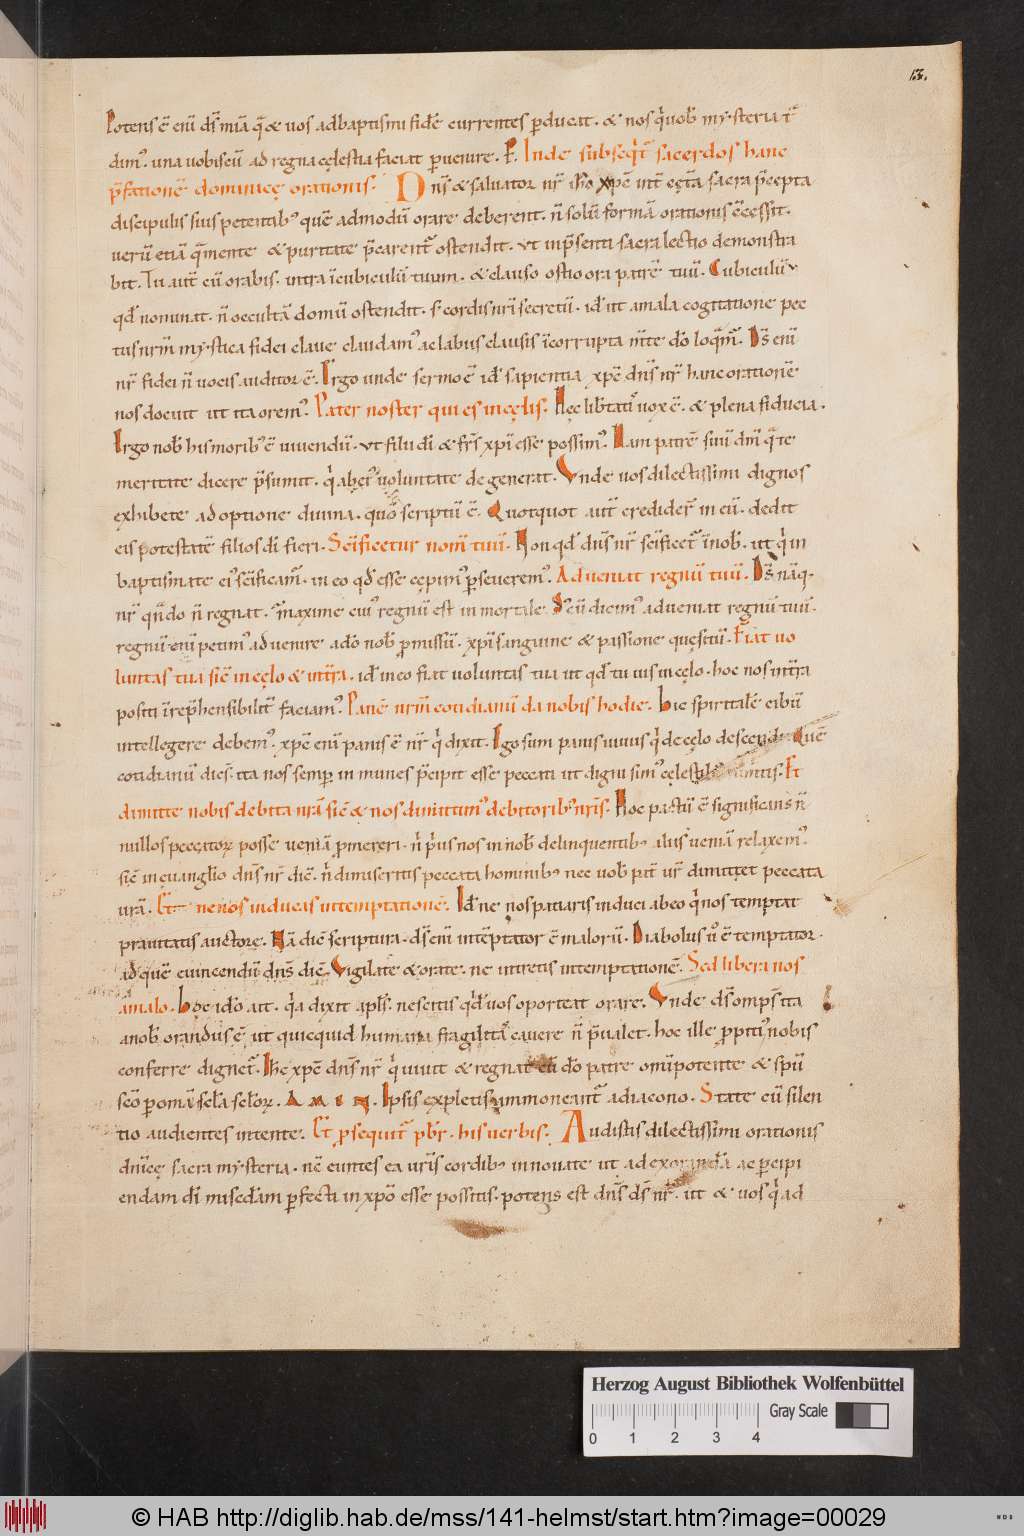 13.
Potens ē eniͫ dſ̄ miā q̄ & uos ad baptismi fidē currentes ꝑducat. & nos q̇ uob̄ mysteria t̄
dimꝰ. una uobiscū ad regna cęlestia faciat ꝑuenire. R̄. Inde subseq̇t̄ sacerdos hanc
p̄fationē dominicę orationis. Dn̄s & saluator nr̄ ih̄c xp̄c int̄ cet̄a sacra p̄cepta
discipulis suis petentibꝰ quē admodū orare deberent. n̄ solū formā orationis c̄cessit.
uerū etiā q̄ mente & puritate p̄carent̄ ostendit. ut in p̄senti sacra lectio demonstra
bit. Tu aut̄ cū orabis. intra ī cubiculū tuum. & clauso ostio ora patrē tuū. Cubiculū
qd̄ nominat. n̄ occultā domū ostendit. s; cordis nr̄i secretū. id ut a mala cogitatione pec
tus nr̄m mystica fidei claue claudamꝰ ac labiis clausis īcorrupta m̄te dō loq̄m̄. Dſ̄ eniͫ
nr̄ fidei n̄ uocis auditor ē. Ergo unde sermo ē id ē sapientia xp̄c dn̄s nr̄ hanc orationē
nos docuit ut ita oremꝰ. Pater noster qui es in cęlis. Hęc lib̄tatis uox ē. & plena fiducia.
Ergo nob̄ his moribꝰ ē uiuendū. ut filii dī & fr̄s xp̄i esse possimꝰ. Nam patrē suū dm̄ q̄ te
meritate dicere p̄sumit. q̇ ab ei̇ꝰ uoluntate degenerat. Unde uos dilectissimi dignos
exhibete adoptione diuina. quō scriptū ē. Quotquot aut̄ credider̄ in eū. dedit
eis potestatē filios dī fieri. Sc̄ificetur nom̄ tuū. Non qd̄ dn̄s nr̄ sc̄ificet̄ ī nob̄. ut q̇ in
baptismate eiꝰ sc̄ificam̄. in eo qd̄ esse cępimꝰ ꝑseueremꝰ. Adueniat regnū tuū. Dſ̄ nāq.
nr̄ qn̄do n̄ regnat. maxime cuiꝰ regnū est inmortale. S; cū dicimꝰ adueniat regnū tuū.
regnū eniͫ petimꝰ aduenire a dō nob̄ ꝓmissū. xp̄i sanguine & passione quęsitū. Fiat uo
luntas tua sic̄ in cęlo & in t̄ra. id ē in eo fiat uoluntas tua ut qd̄ tu uis in cęlo. hoc nos in t̄ra
positi īrep̄hensibilit̄ faciamꝰ. Panē nr̄m cotidianū da nobis hodie. Hic spiritalē cibū
intellegere debemꝰ. xp̄c eniͫ panis ē nr̄ q̇ dixit. Ego sum panis uiuus q̇ de cęlo descendi. Quē
cotidianū dicꝰ. ita nos semꝑ inmunes p̄cipit esse peccati ut digni simꝰ cęlestibꝰ Et
dimitte nobis debita nr̄a sic̄ & nos dimittimꝰ debitoribꝰ nr̄is. Hoc pactū ē significans n̄
nullos peccatoꝝ posse ueniā ꝓmereri. n̄ ṗus nos in nob̄ delinquentibꝰ aliis ueniā relaxemꝰ.
sic̄ in euanglio dn̄s nr̄ dic̄. n̄ dimiseritis peccata hominibꝰ nec uob̄ pat̄ ur̄ dimittet peccata
ur̄a. Et ne nos inducas in temptationē. Id ē ne nos patiaris induci ab eo q̇ nos temptat
prauitatis auctore. Nā dic̄ scriptura. dſ̄ eniͫ intēptator ē malorū. Diabolus ū ē temptator.
ad quē euincendū dn̄s dic̄. Vigilate & orate. ne intretis in temptationē. Sed libera nos
a malo. Hoc idō ait. q̇a dixit apl̄s. nescitis qd̄ uos oporteat orare. Unde dſ̄ omps̄ ita
a nob̄ orandus ē. ut quicquid humana fragilitā cauere n̄ p̄ualet. hoc ille ꝓpitiꝰ nobis
conferre dignet̄. Ih̄c xp̄c dn̄s nr̄ q̇ uiuit & regnat cū dō patre omīpotente & spū
sc̄o ꝑ oma sc̄la sc̄loꝝ. AMEN. Ipsis expletis ammoneant̄ a diacono. State cū silen
tio audientes intente. Et ꝓsequit̄ pb̄r his uerbis. Audistis dilectissimi orationis
dn̄icę sacra mysteria. nc̄ euntes ea ur̄is cordibꝰ innouate ut ad exorandā ac ꝑcipi
endam dī mis̄cdiam ꝑfecti in xp̄o esse possitis. potens est dn̄s dſ̄ nr̄. ut & uos q̇ ad
Herzog August Bibliothek Wolfenbüttel
Gray Scale
0 1 2 3 4
© HAB http://diglib.hab.de/mss/141-helmst/start.htm?image=00029